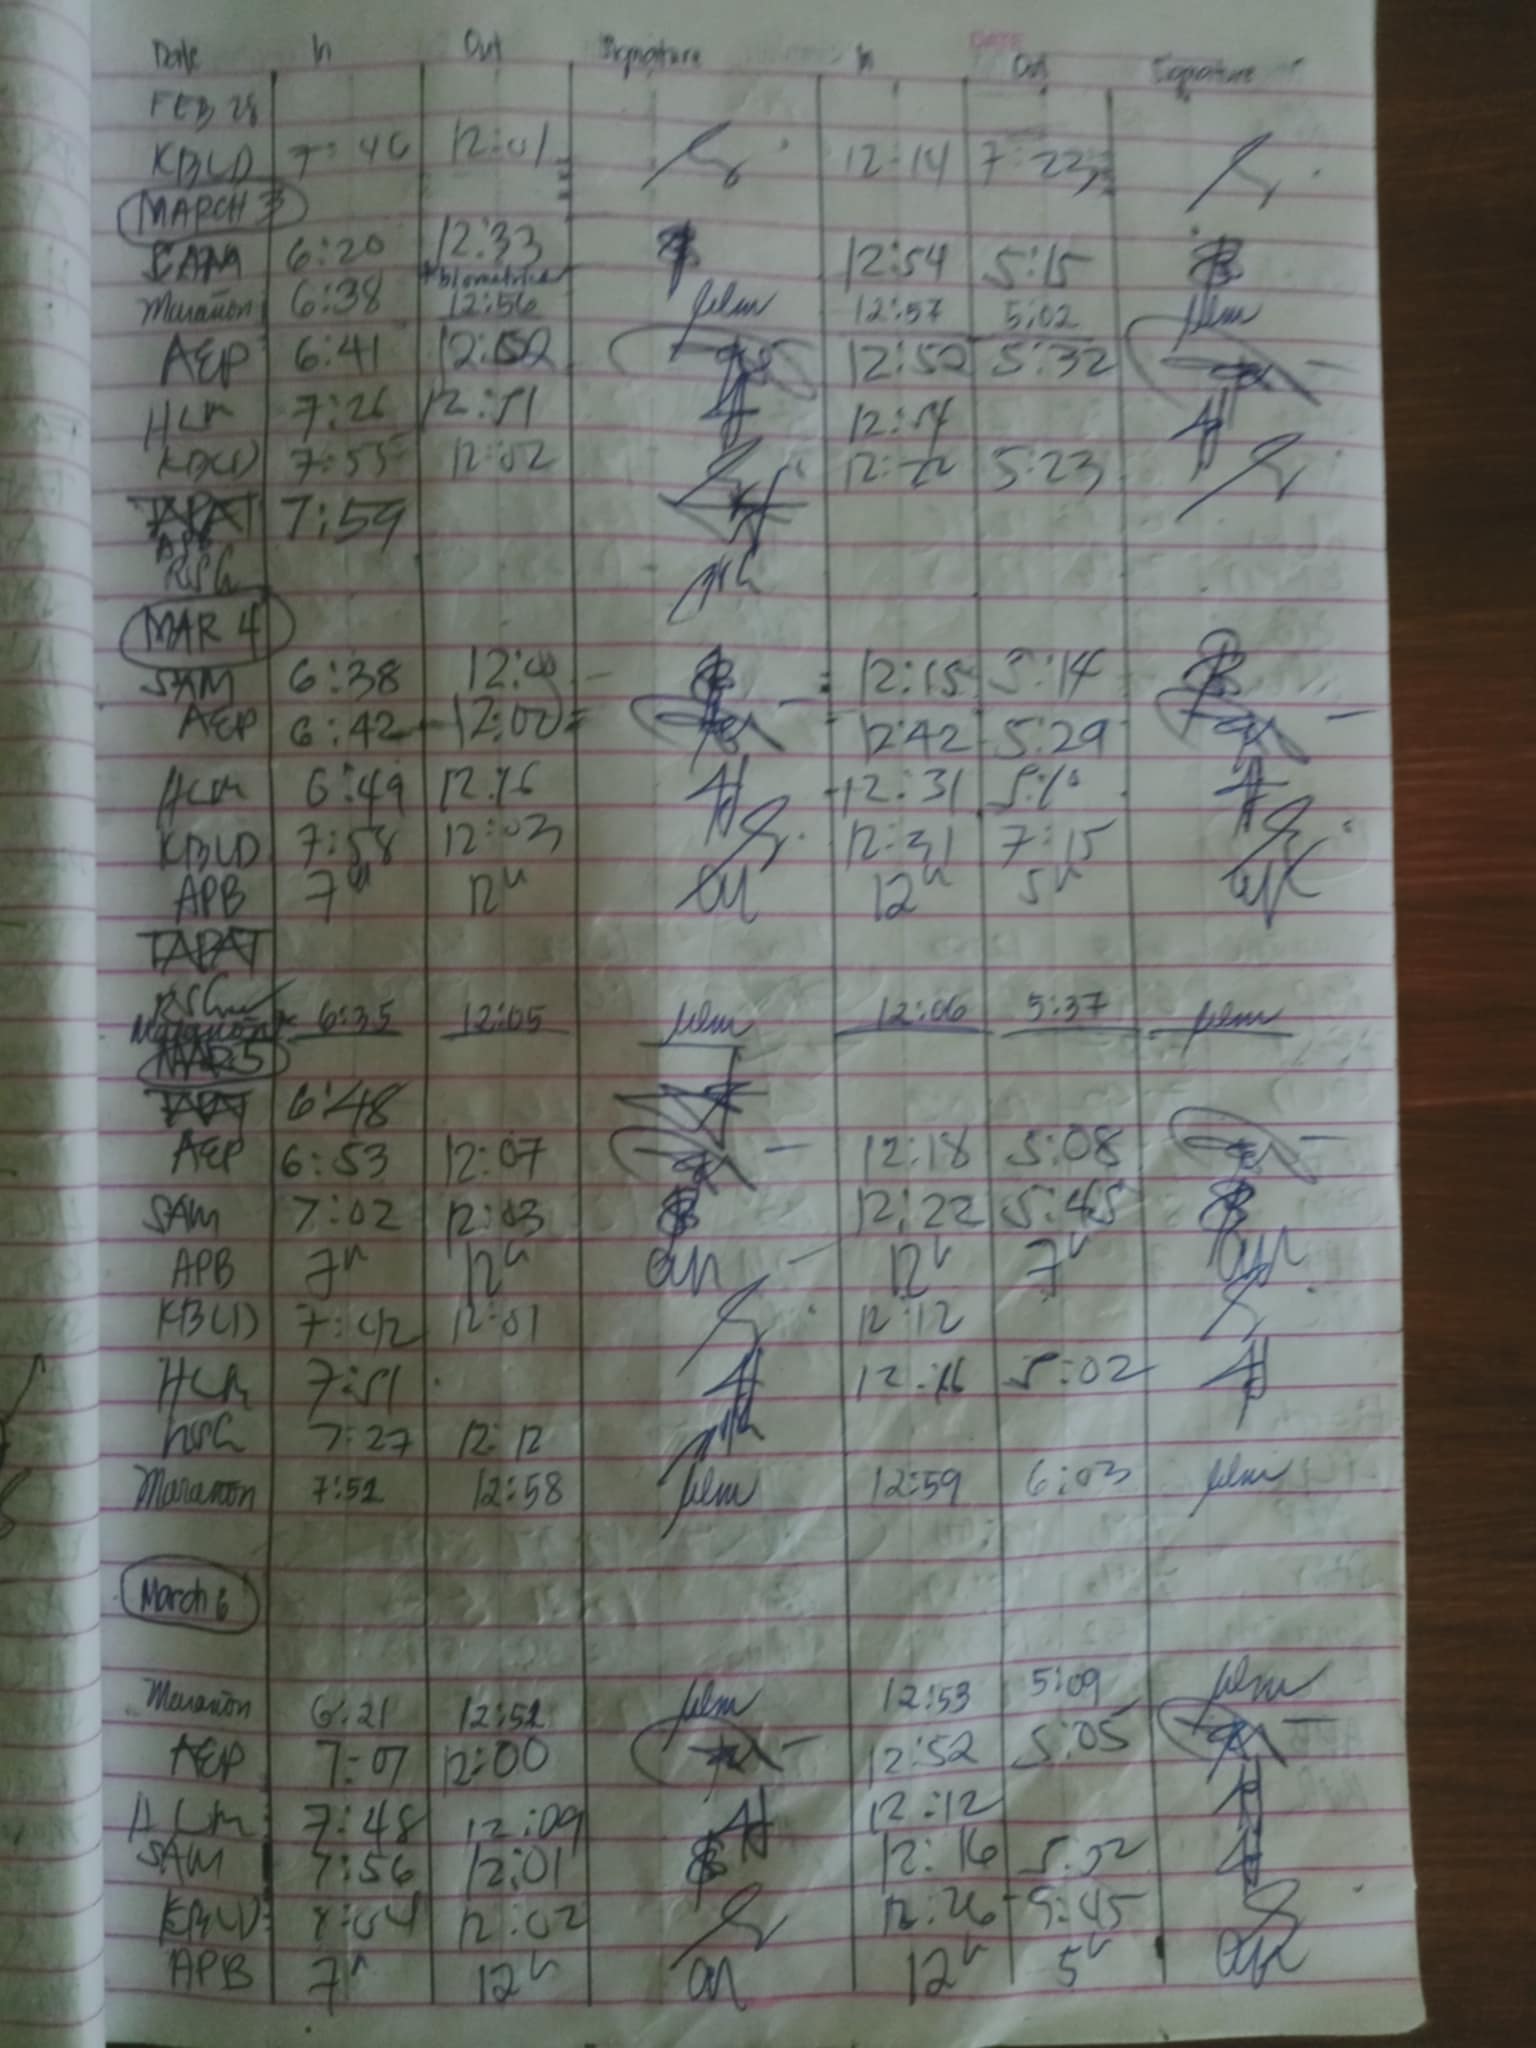 Date In Out Signature In Out Signature
DATE
FEB 28
KBLD 7:46 12:01 12:14 7:23
MARCH 3
SAM 6:20 12:33 12:54 5:15
*biometrics
Marañon 6:38 12:56 12:57 5:02
AEP 6:41 12:52 12:52 5:32
HLM 7:26 12:51 12:54
KBLD 7:55 12:02 12:22 5:23
TAPAT 7:59
RSG
MAR 4
SAM 6:38 12:15 5:14
AEP 6:42 12:00 12:42 5:29
HLM 6:49 12:16 12:31
KBLD 7:58 12:03 12:31 7:15
APB 7 12 12 5
TAPAT
RSG
Marañon 6:35 12:05 12:06 5:37
MAR 5
TAPAT 6:48
AEP 6:53 12:07 12:18 5:08
SAM 7:02 12:03 12:22 5:45
APB 7 12 12 7
KBLD 7:42 12:01 12:12
HLM 7:51 12:16 5:02
RSG 7:27 12:12
Marañon 7:52 12:58 12:59 6:03
March 6
Marañon 6:21 12:52 12:53 5:09
AEP 7:07 12:00 12:52 5:05
HLM 7:48 12:09 12:12
SAM 7:56 12:01 12:16 5:02
KBLD 8:04 12:02 12:26 9:45
APB 7 12 12 5